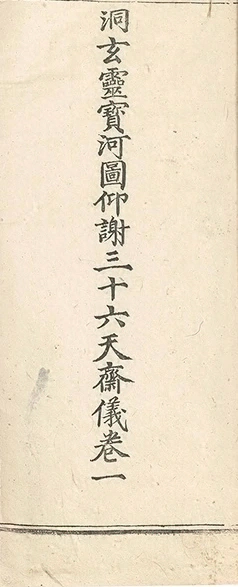 洞玄靈寶河圖仰謝三十六天齋儀卷一